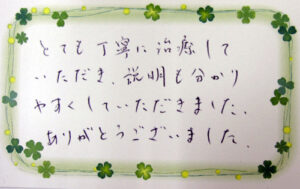 とても丁寧に治療して
いただき、説明も分かり
やすくしていただきました。
ありがとうございました。